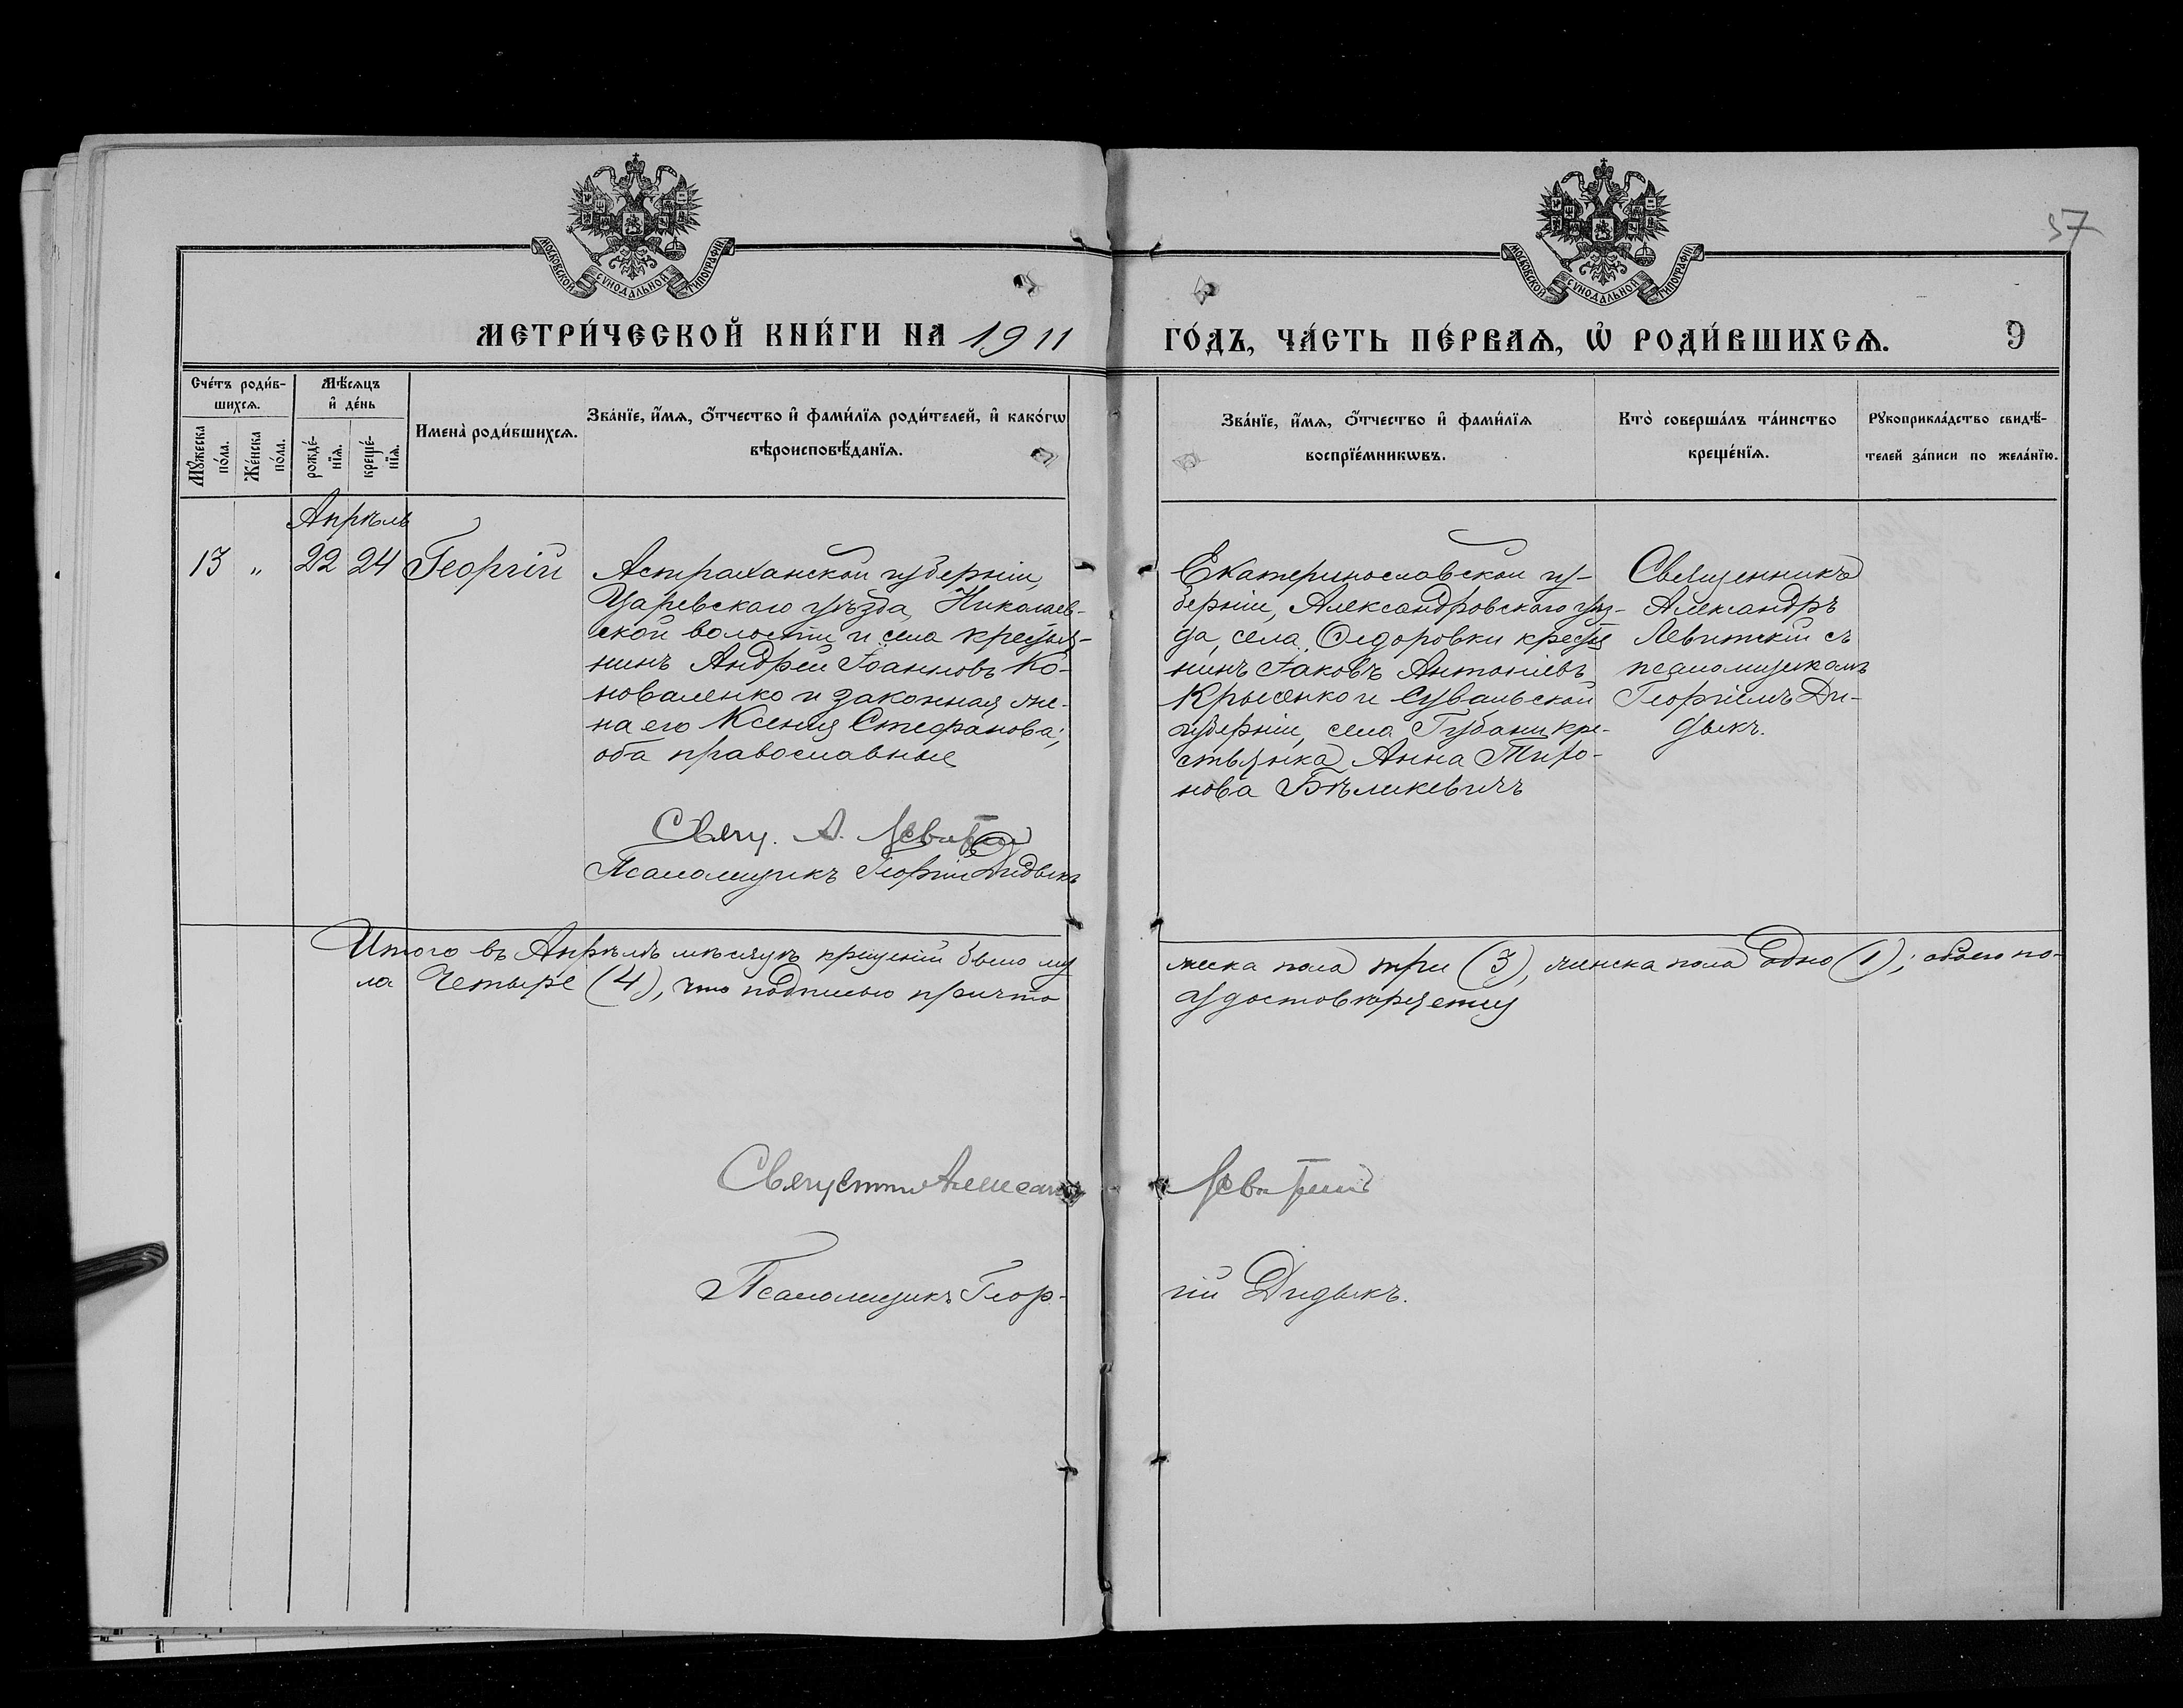 МОСКОВСКОЙ СУНОДАЛЬНОЙ ТИПОГРАФІИ
МОСКОВСКОЙ СУНОДАЛЬНОЙ ТИПОГРАФІИ
57
МЕТРИ́ЧЕСКОЙ КНИ́ГИ НА 1911 ГО́ДЪ, ЧА́СТЬ ПЕ́РВАѦ, Ѡ҆ РОДИ́ВШИХСѦ. 9
Сче́тъ роди́в-
шихсѧ.
Мѣ́сѧцъ
и҆ де́нь
Мꙋ́жеска
по́ла.
Же́нска
по́ла.
рожде́-
нїѧ.
креще́-
нїѧ.
Имена̀ роди́вшихсѧ.
Зва́нїе, и҆́мѧ, ѻ҆́тчество и҆ фами́лїѧ роди́телей, и҆ како́гѡ
вѣроисповѣ́данїѧ.
Зва́нїе, и҆́мѧ, ѻ҆́тчество и҆ фами́лїѧ
воспрїе́мникѡвъ.
Кто̀ соверша́лъ та́инство
креще́нїѧ.
Рꙋкоприкла́дство свидѣ́-
телей за́писи по жела́нїю.
Апрѣль
13 „ 22 24 Георгій
Астраханской губерніи,
Царевскаго уѣзда, Николаев-
ской волости и села крестья-
нинъ Андрей Іоанновъ Ко-
новаленко и законная же-
на его Ксенія Стефанова;
оба православные
Свящ. А. Левитскій
Псаломщикъ Георгій Дидыкъ
Екатеринославской гу-
берніи, Александровскаго уѣз-
да, села Ѳедоровки крестья
нинъ Іаковъ Антоніевъ
Крысенко и Сувальской
губерніи, села Губани кре-
стьянка Анна Миро-
нова Бѣликевичъ
Священникъ
Александръ
Левитскій съ
псаломщикомъ
Георгіемъ Ди-
дыкъ.
Итого въ Апрѣлѣ мѣсяцѣ крещеній было му жеска пола три (3), женска пола одно (1); обоего по-
ла Четыре (4), что подписью причта удостовѣряетсѧ
Священникъ Александръ Левитскій
Псаломщикъ Геор- гій Дидыкъ.